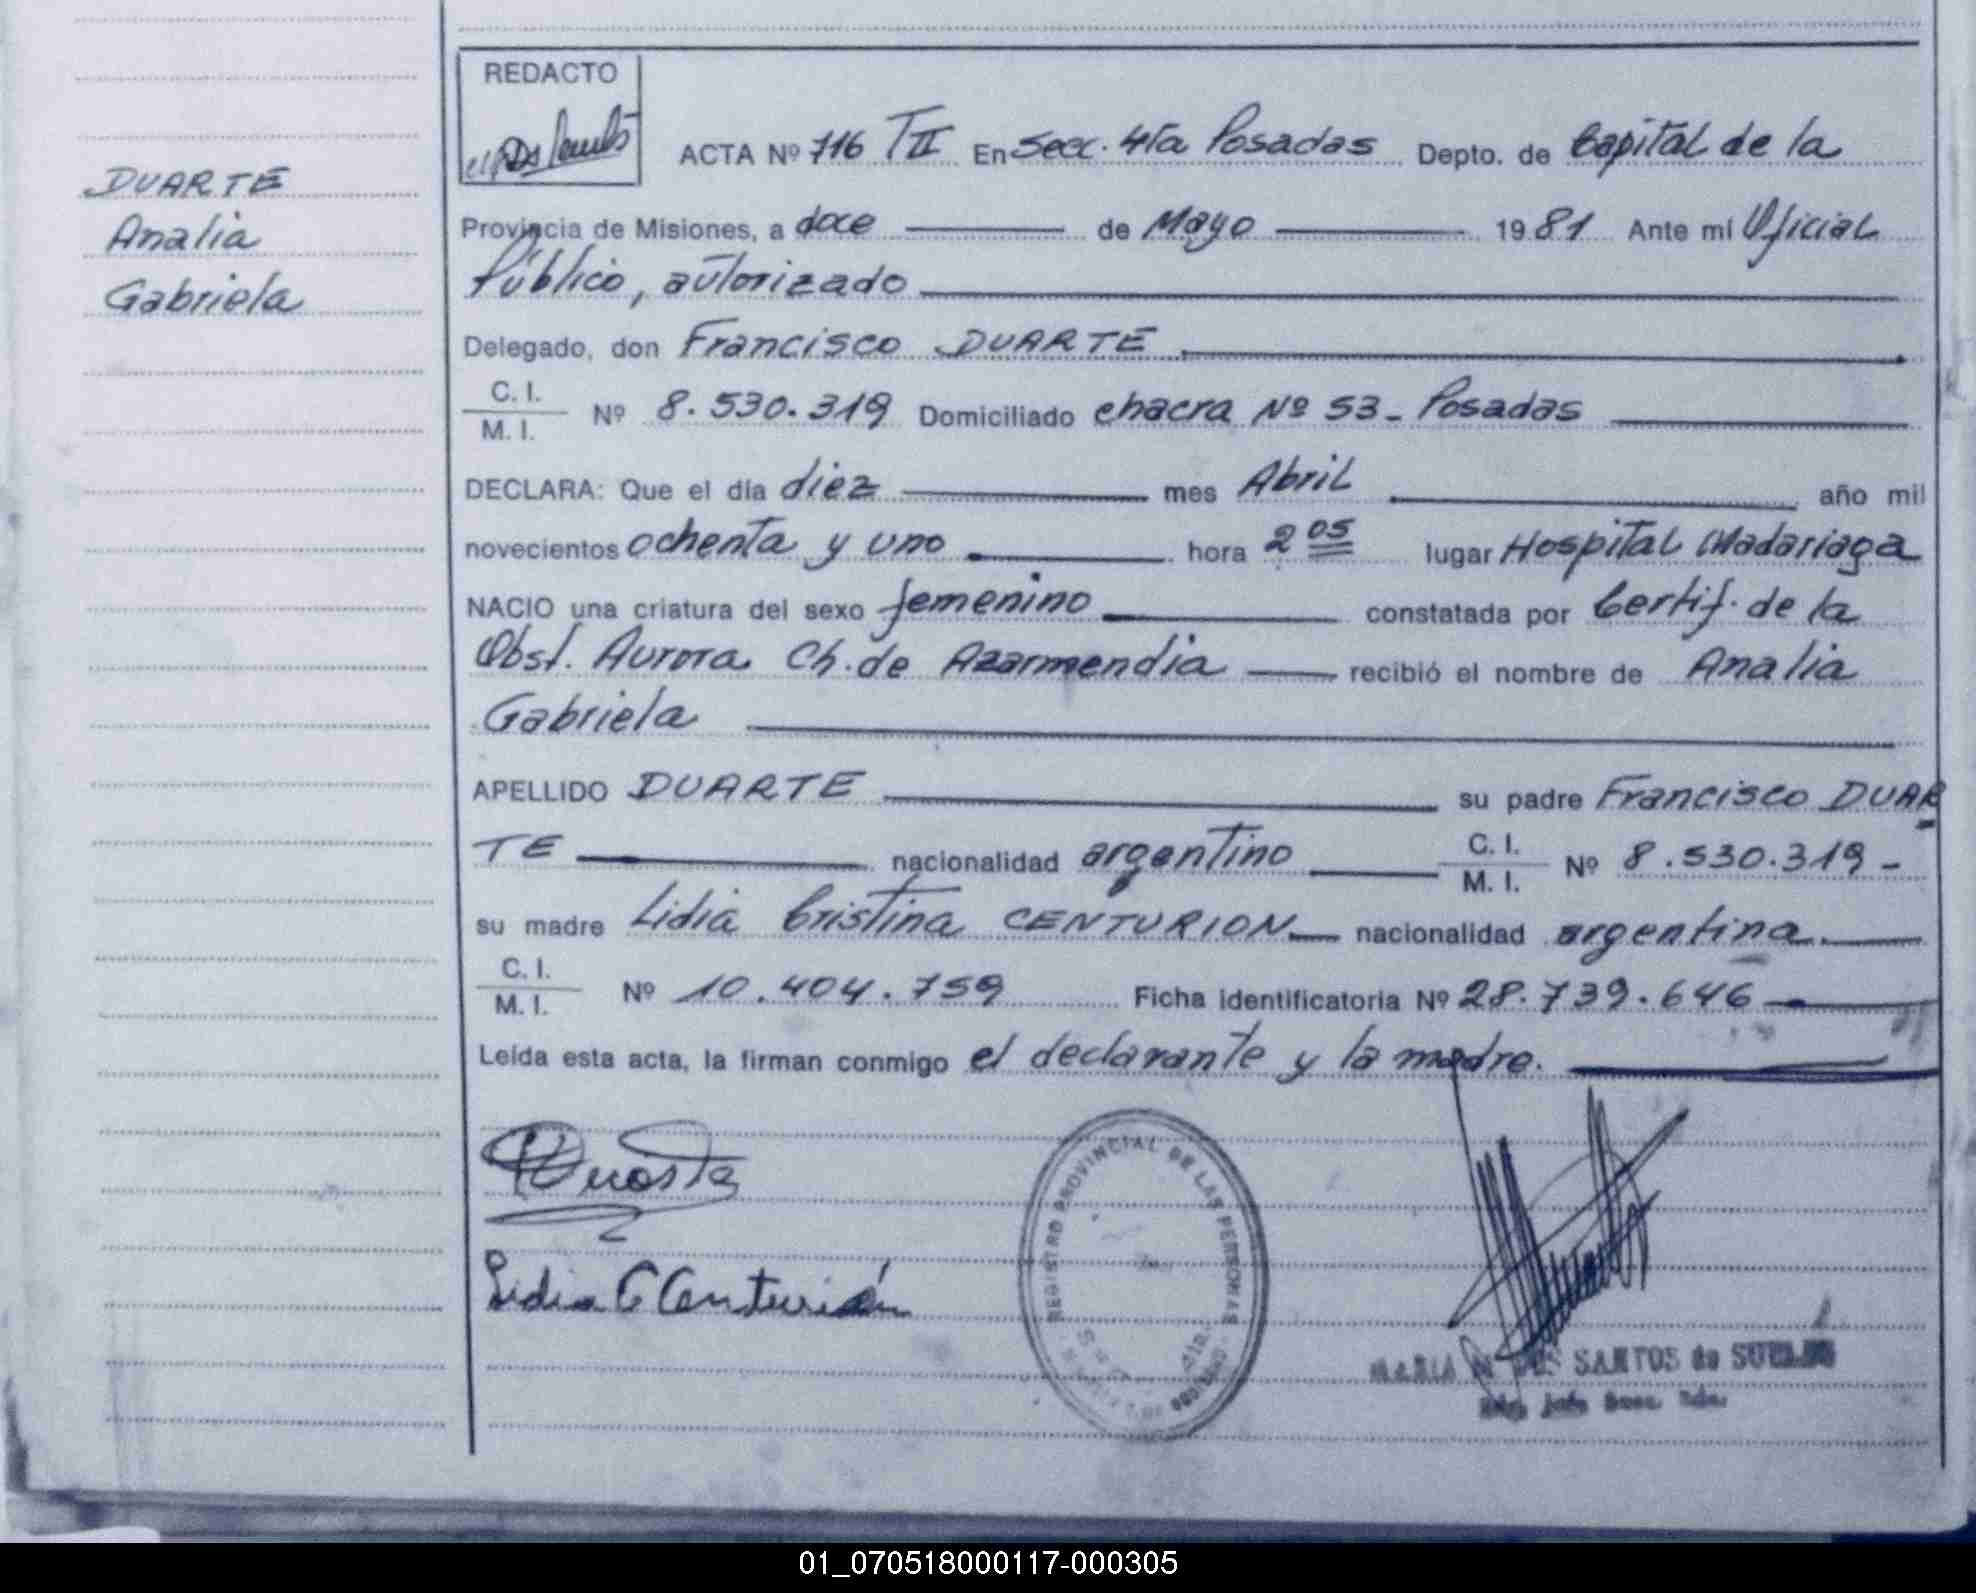 DUARTE
Analia
Gabriela
REDACTO
ACTA Nº 716 TII En Secc. 4ta Posadas Depto. de Capital de la
Provincia de Misiones, a doce de Mayo 1981 Ante mi Oficial
Público, autorizado
Delegado, don Francisco DUARTE
C. I.
M. I. Nº 8.530.319 Domiciliado chacra Nº 53 - Posadas
DECLARA: Que el día diez mes Abril año mil
novecientos ochenta y uno hora 2 05 lugar Hospital Madariaga
NACIO una criatura del sexo femenino constatada por Certif. de la
Obst. Aurora Ch. de Azarmendia recibió el nombre de Analia
Gabriela
APELLIDO DUARTE su padre Francisco DUAR
TE nacionalidad argentino C. I.
M. I. Nº 8.530.319 -
su madre Lidia Cristina CENTURION nacionalidad argentina.
C. I.
M. I. Nº 10.404.759 Ficha identificatoria Nº 28.739.646
Leída esta acta, la firman conmigo el declarante y la madre.
REGISTRO PROVINCIAL DE LAS PERSONAS
Lidia C Centurión
MARIA SANTOS de
01_070518000117-000305